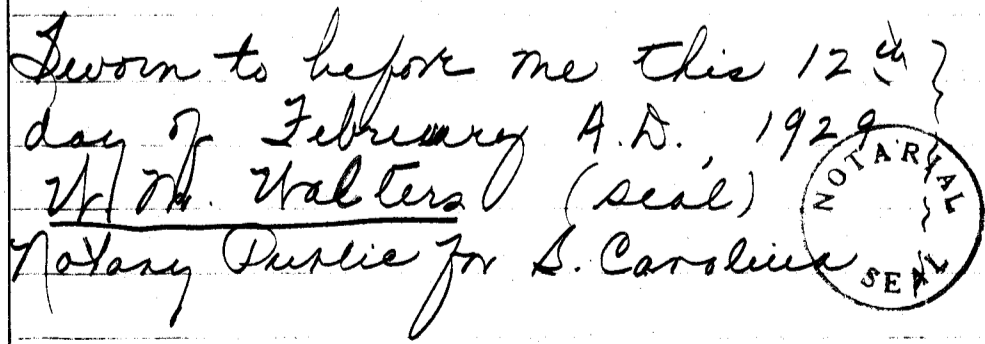 Sworn to before me this 12th
day of February A.D., 1929
W. M. Walters (seal)
Notary Public for S. Carolina
NOTARIAL
SEAL